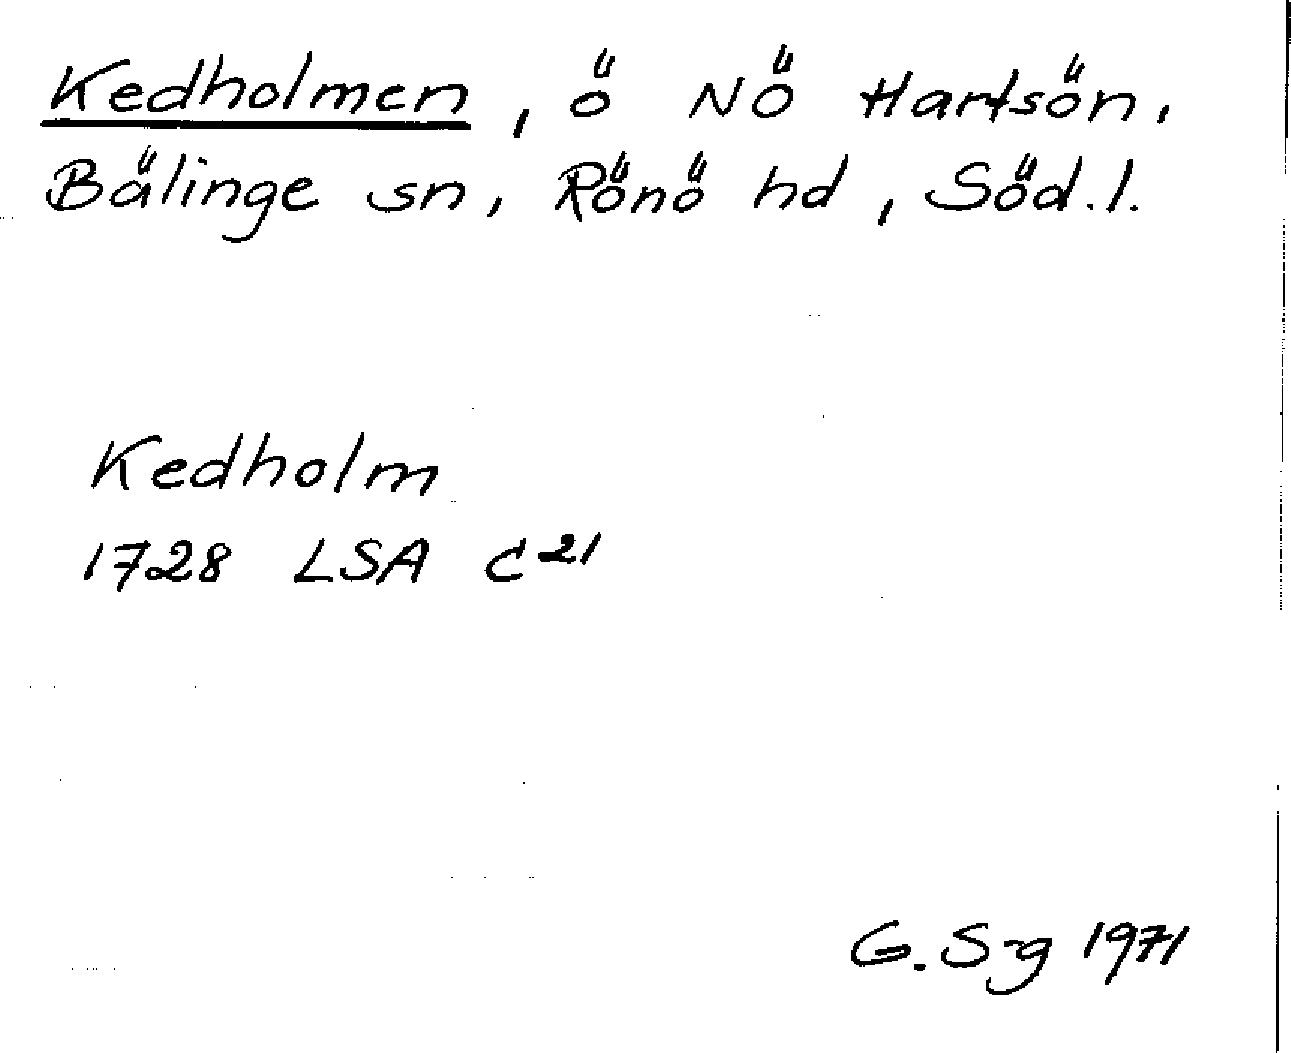 Kedholmen, ö NÖ Hartsön,
Bälinge sn, Rönö hd, Söd.l.
Kedholm
1728 LSA C21
G. S-g 1971